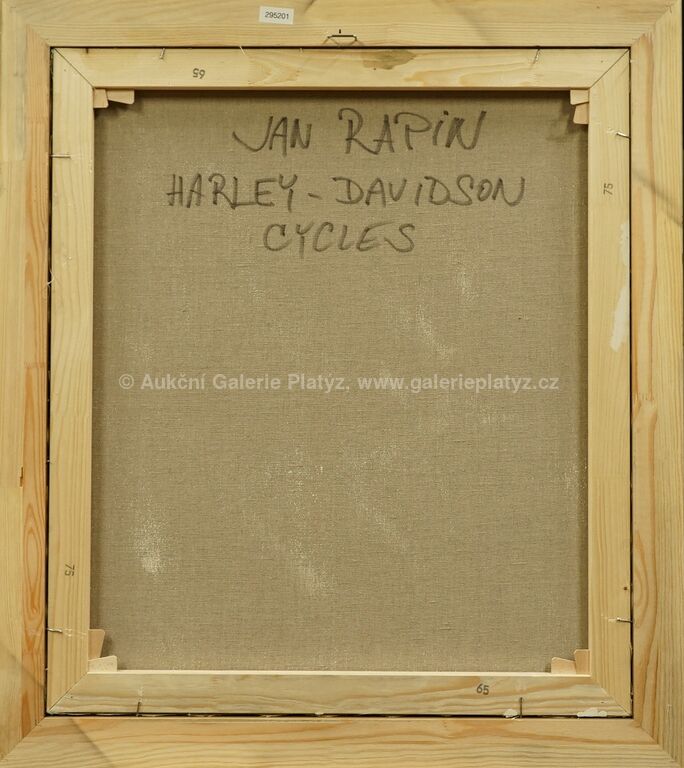 295201
65
JAN RAPIN
HARLEY-DAVIDSON
CYCLES
75
© Aukční Galerie Platýz, www.galerieplatyz.cz
75
65